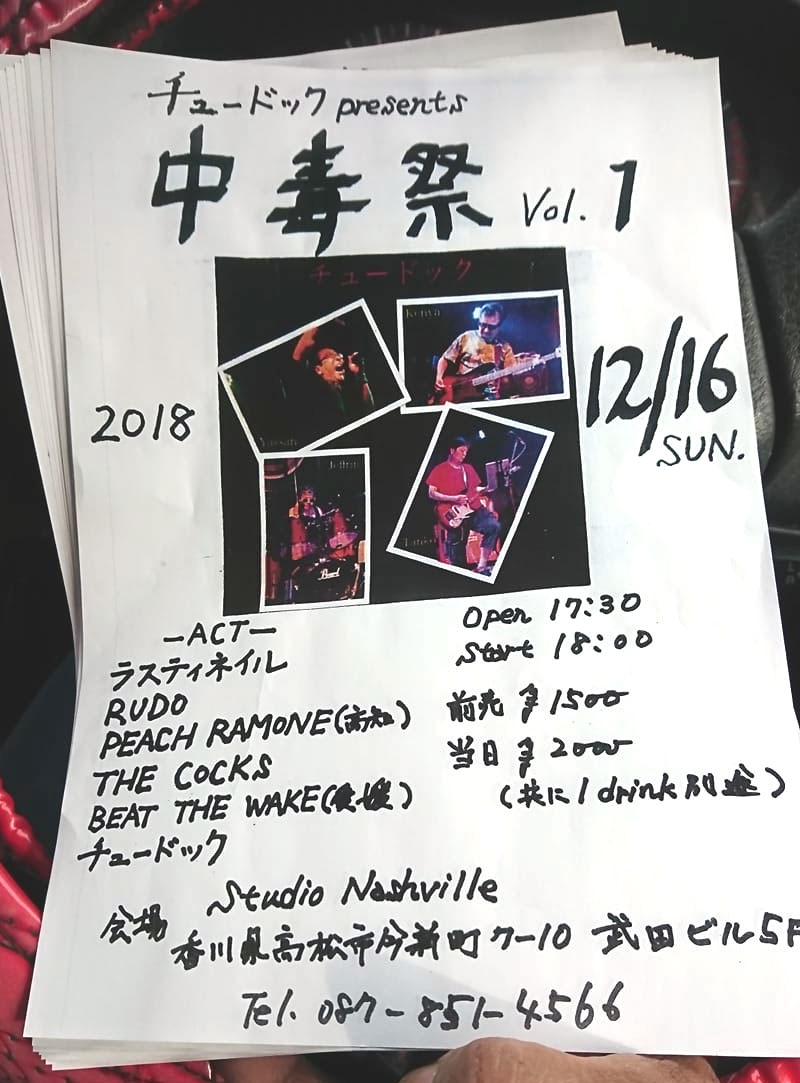 チュードック presents
中毒祭 Vol.1
チュードック
Kenya
2018
12/16
SUN.
Pearl
Open 17:30
Start 18:00
前売 ¥1500
当日 ¥2000
(共に1drink別途)
-ACT-
ラスティネイル
RUDO
PEACH RAMONE(高知)
THE COCKS
BEAT THE WAKE(愛媛)
チュードック
会場 Studio Nashville
香川県高松市今新町7-10 武田ビル5F
Tel. 087-851-4566